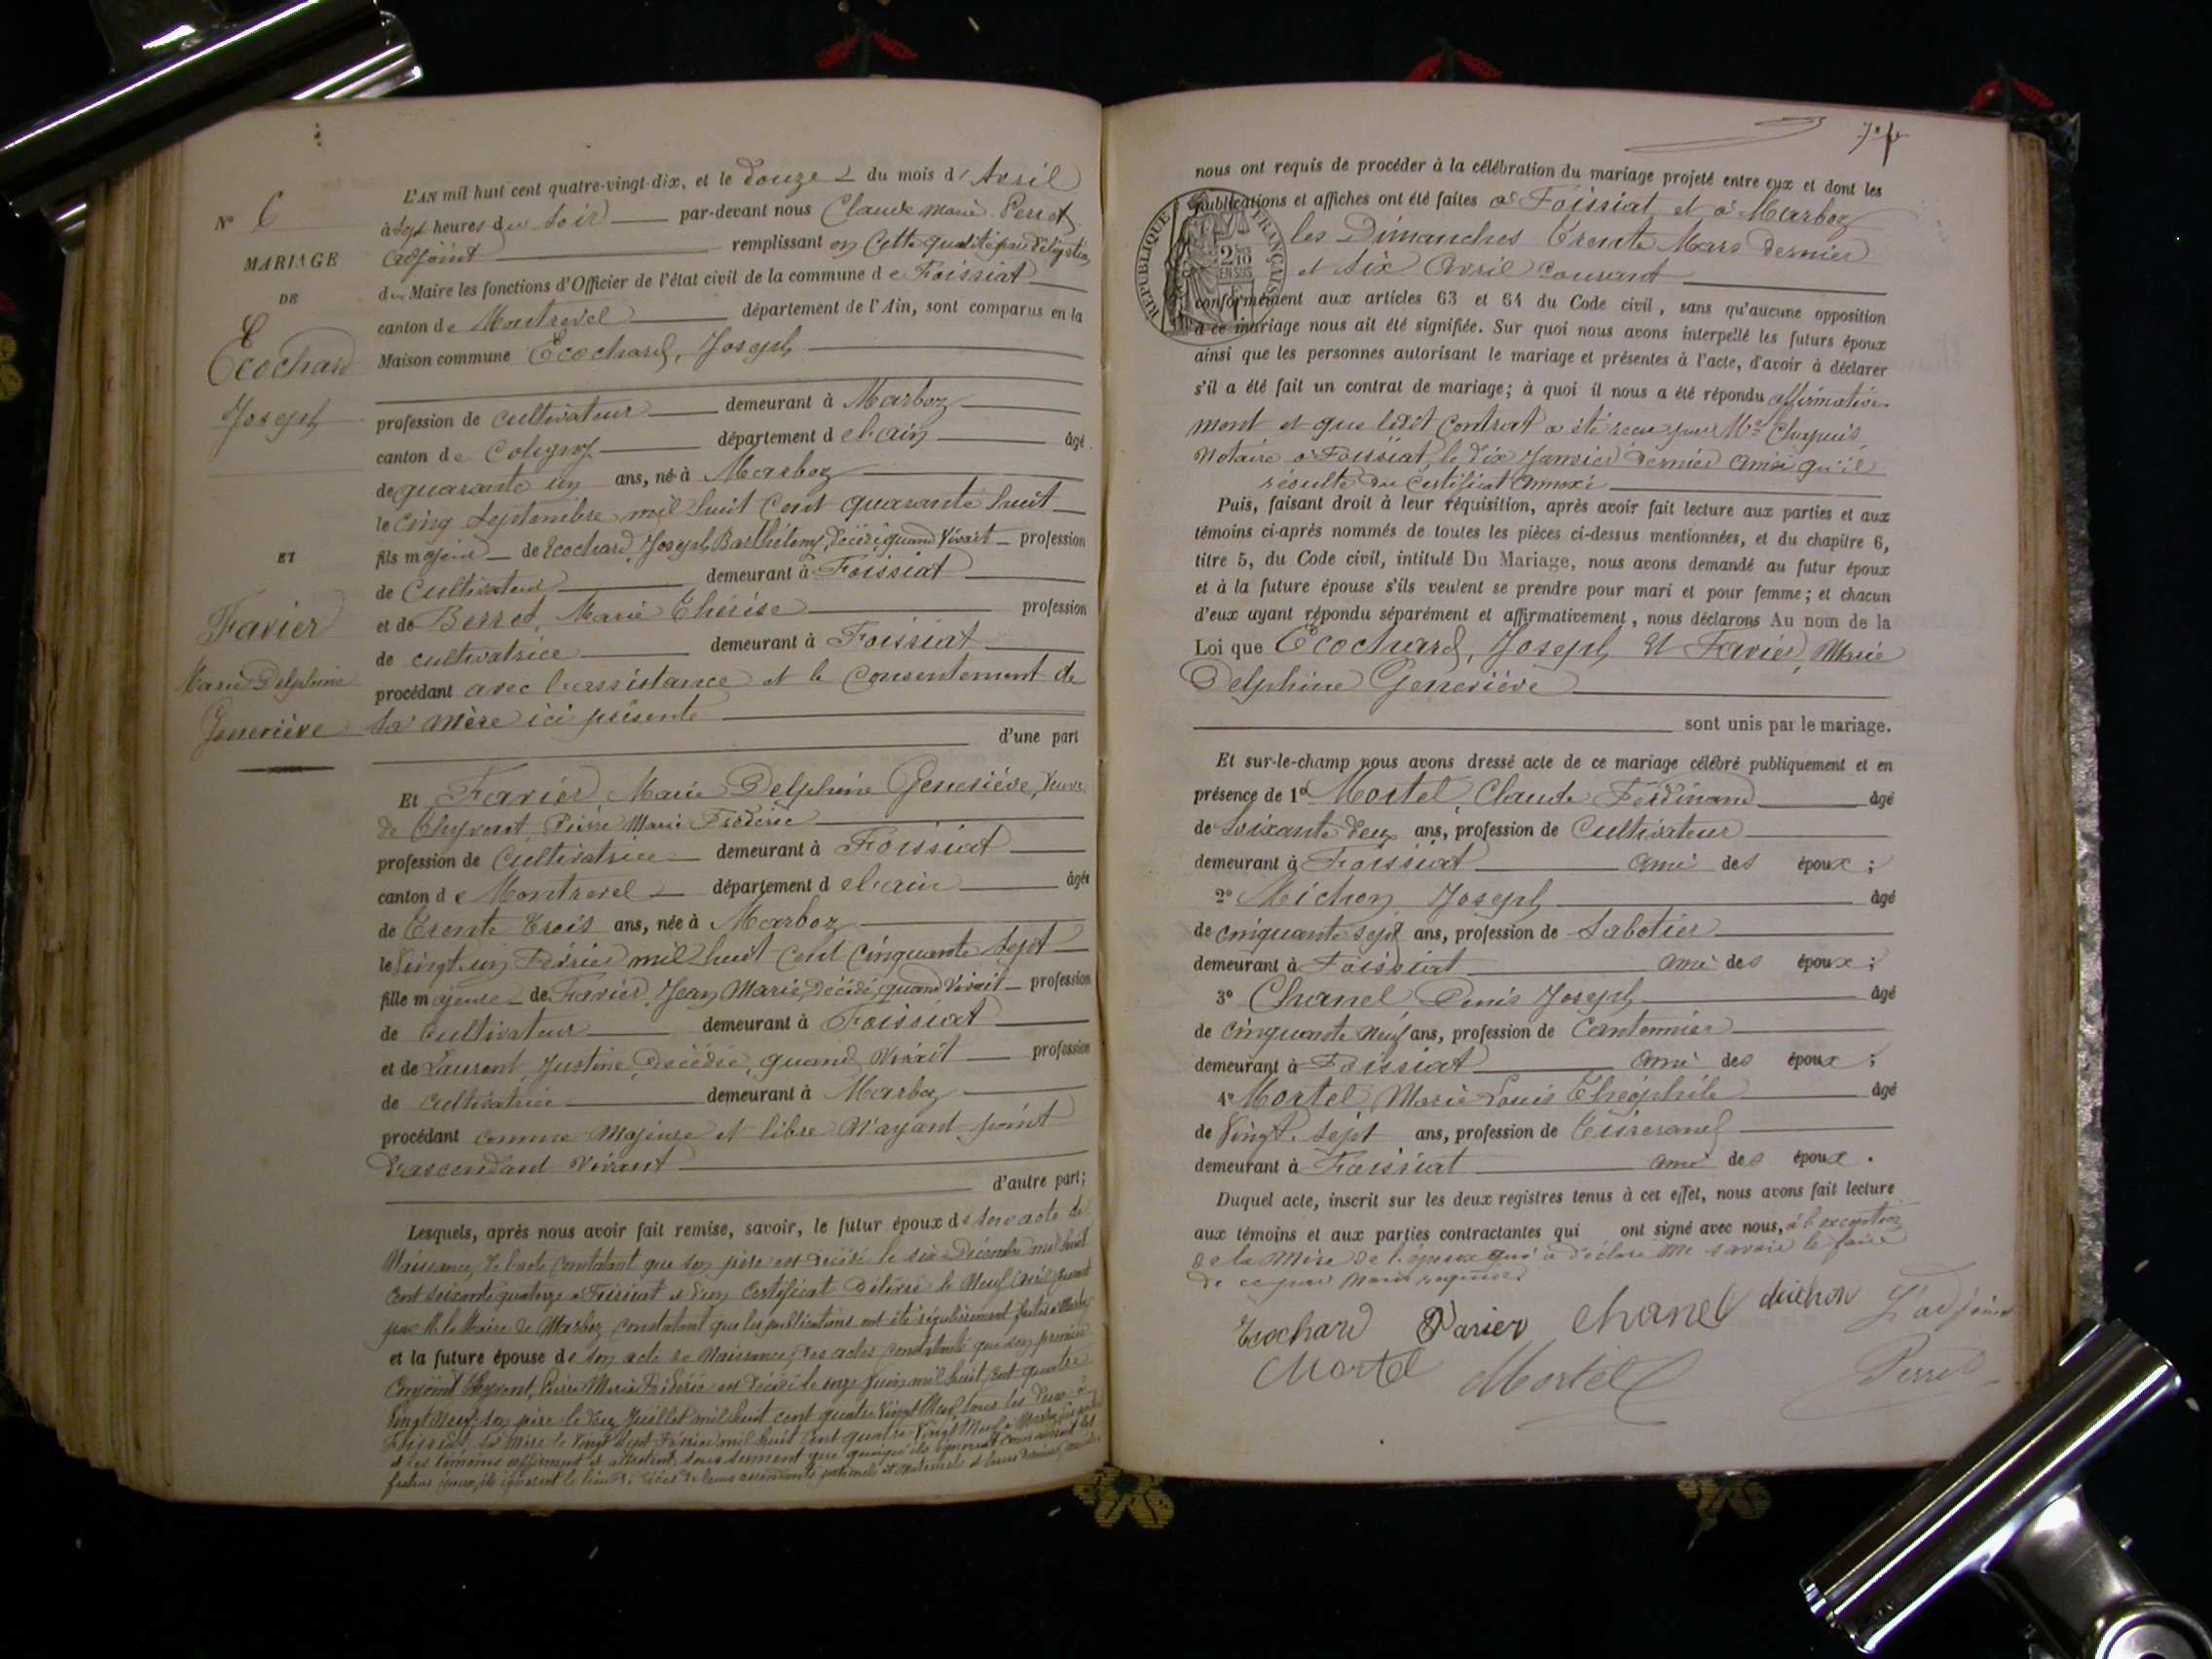 L'AN mil huit cent quatre-vingt-dix, et le Douze du mois d'Avril
N° 6
à Sept heures du Soir par-devant nous Claude Marie Perret
MARIAGE
adjoint remplissant en cette qualité par délégation
DE
du Maire les fonctions d'Officier de l'état civil de la commune de Foissiat
canton de Montrevel département de l'Ain, sont comparus en la
Ecochard
Maison commune Ecochard, Joseph
Joseph
profession de cultivateur demeurant à Marboz
canton de Coligny département de l'ain âgé
de quarante un ans, né à Marboz
le cinq Septembre mil huit cent quarante huit
ET
fils majeur de Ecochard Joseph Barthélemy, décédé, quand vivait profession
de Cultivateur demeurant à Foissiat
Favier
et de Berret, Marie Thérèse profession
de cultivatrice demeurant à Foissiat
Marie Delphine
procédant avec l'assistance et le consentement de
Geneviève
sa mère ici présente
d'une part
Et Favier Marie Delphine Geneviève, Veuve
de Chyvert, Pierre Marie Frédéric
profession de Cultivatrice demeurant à Foissiat
canton de Montrevel département de l'ain âgée
de Trente trois ans, née à Marboz
le Vingt un Février mil huit cent cinquante sept
fille majeure de Favier, Jean Marie, décédé, quand vivait profession
de cultivateur demeurant à Foissiat
et de Laurent, Justine, décédée, quand vivait profession
de cultivatrice demeurant à Marboz
procédant comme majeure et libre n'ayant point
d'ascendant vivant
d'autre part;
Lesquels, après nous avoir fait remise, savoir, le futur époux de son acte de
Naissance, de l'acte constatant que son père est décédé le six Décembre mil huit
cent soixante quatorze à Foissiat et d'un certificat délivré le Neuf Avril
par M. le Maire de Marboz constatant que les publications ont été régulièrement faites à Marboz
et la future épouse de son acte de Naissance, des actes constatants que son premier
conjoint Chyvert, Pierre Marie Frédéric est décédé le onze juin mil huit cent quatre
Vingt Neuf, son père le deux Juillet mil huit cent quatre Vingt Neuf, tous les deux à
Foissiat, sa mère le Vingt Sept Février mil huit cent quatre Vingt Neuf à Marboz
et les témoins affirment et attestent sous serment que quoiqu'ils connaissent les
futurs époux, ils ignorent le lieu du décès de leurs ascendants paternels et maternels et leurs derniers
nous ont requis de procéder à la célébration du mariage projeté entre eux et dont les
publications et affiches ont été faites à Foissiat et à Marboz
les Dimanches Trente Mars dernier
et six Avril courant
RÉPUBLIQUE FRANÇAISE
2/10 EN SUS
conformément aux articles 63 et 64 du Code civil, sans qu'aucune opposition
à ce mariage nous ait été signifiée. Sur quoi nous avons interpellé les futurs époux
ainsi que les personnes autorisant le mariage et présentes à l'acte, d'avoir à déclarer
s'il a été fait un contrat de mariage; à quoi il nous a été répondu affirmative-
ment et que ledit contrat a été reçu par Me Chapuis,
Notaire à Foissiat, le dix Janvier dernier ainsi qu'il
résulte du certificat annexé
Puis, faisant droit à leur réquisition, après avoir fait lecture aux parties et aux
témoins ci-après nommés de toutes les pièces ci-dessus mentionnées, et du chapitre 6,
titre 5, du Code civil, intitulé Du Mariage, nous avons demandé au futur époux
et à la future épouse s'ils veulent se prendre pour mari et pour femme; et chacun
d'eux ayant répondu séparément et affirmativement, nous déclarons Au nom de la
Loi que Ecochard, Joseph et Favier, Marie
Delphine Geneviève
sont unis par le mariage.
Et sur-le-champ nous avons dressé acte de ce mariage célébré publiquement et en
présence de 1° Mortel, Claude Ferdinand âgé
de Soixante deux ans, profession de Cultivateur
demeurant à Foissiat ami des époux;
2° Michon Joseph âgé
de cinquante sept ans, profession de Sabotier
demeurant à Foissiat ami des époux;
3° Chanel Denis Joseph âgé
de cinquante neuf ans, profession de Cantonnier
demeurant à Foissiat ami des époux;
4° Mortel Marie Louis Théophile âgé
de Vingt sept ans, profession de Tisserand
demeurant à Foissiat ami des époux.
Duquel acte, inscrit sur les deux registres tenus à cet effet, nous avons fait lecture
aux témoins et aux parties contractantes qui ont signé avec nous, à l'exception
de la mère de l'époux qui a déclaré ne savoir le faire
de ce par nous requise
Ecochard Favier Chanel Michon L'adjoint
Mortel Mortel Perret